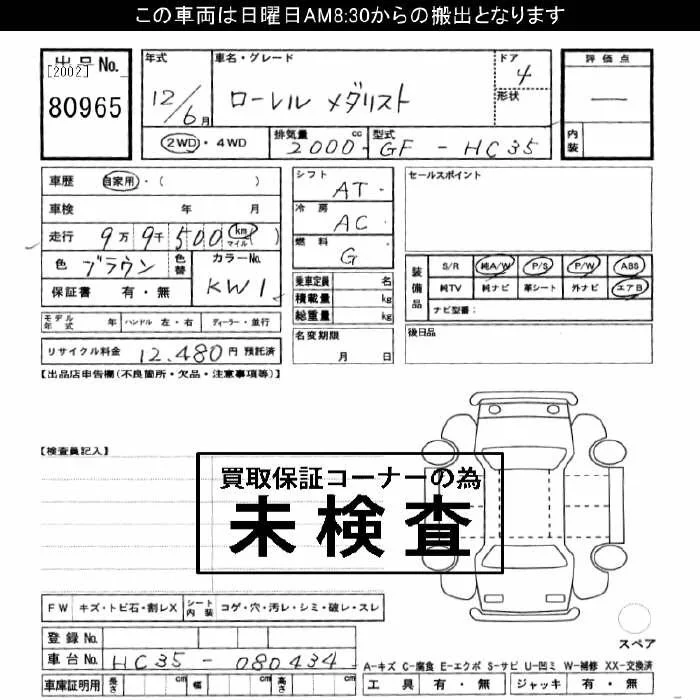 この車両は日曜日AM8:30からの搬出となります
出品No. [2002] 80965
年式 12/6月
車名・グレード ローレル メダリスト
ドア 4
形状
評価点 —
内装
2WD・4WD 排気量 2000 cc 型式 GF - HC35
車歴 自家用・( )
車検 年 月
走行 9万 9千 500 km マイル ( )
色 ブラウン 色替 カラーNo. KW1
保証書 有・無
モデル年式 年 ハンドル 左・右 ディーラー・並行
リサイクル料金 12,480 円 預託済
シフト AT・
冷房 AC・
燃料 G
乗車定員 名
積載量 kg
総重量 kg
名変期限 月 日
セールスポイント
装備品 S/R 純A/W P/S P/W ABS
純TV 純ナビ 革シート 外ナビ エアB
ナビ型番:
後日品
【出品店申告欄(不良箇所・欠品・注意事項等)】
【検査員記入】
買取保証コーナーの為
未検査
FW キズ・トビ石・割レX シート内装 コゲ・穴・汚レ・シミ・破レ・スレ
登録No.
車台No. HC35 - 080434
車庫証明用 長さ cm 幅 cm 高さ cm
スペア
A-キズ C-腐食 E-エクボ S-サビ U-凹ミ W-補修 XX-交換済
工具 有・無 ジャッキ 有・無